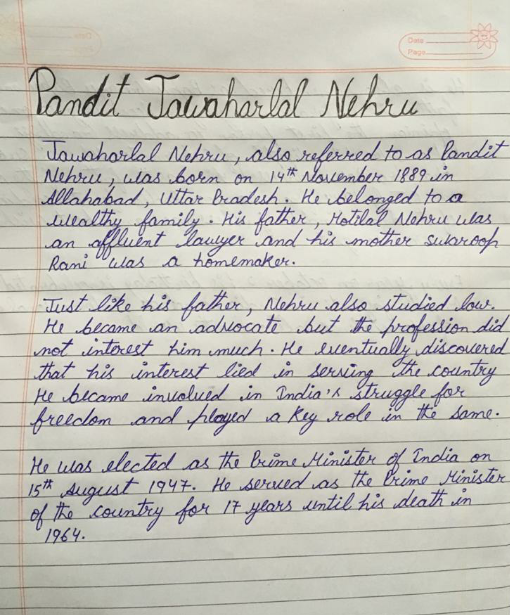 Date
Page
Pandit Jawaharlal Nehru
Jawaharlal Nehru, also referred to as Pandit
Nehru, was born on 14th November 1889 in
Allahabad, Uttar Pradesh. He belonged to a
wealthy family. His father, Motilal Nehru was
an affluent lawyer and his mother swaroop
Rani was a homemaker.
Just like his father, Nehru also studied law.
He became an advocate but the profession did
not interest him much. He eventually discovered
that his interest lied in serving the country
He became involved in India's struggle for
freedom and played a key role in the same.
He was elected as the Prime Minister of India on
15th August 1947. He served as the Prime Minister
of the country for 17 years until his death in
1964.